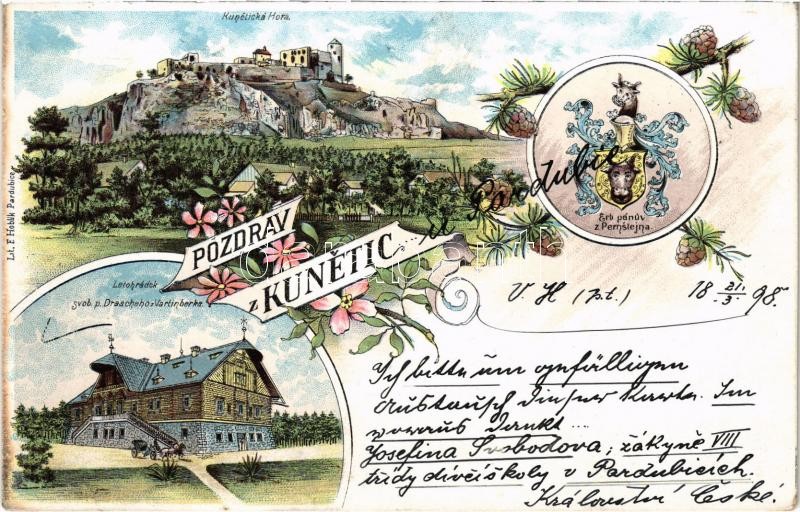 Kunětická Hora.
Lit. F. Hoblík Pardubice
Erb pánův
z Pernštejna.
POZDRAV
z KUNĚTIC
u Pardubic
Letohrádek
svob. p. Drascheho z Vartinberka.
V. H. (p.t.) 18 21./3. 98.
Ich bitte um gefälligen
Austausch dieser Karte. Im
voraus dankt
Josefina Svobodova, žákyně VIII
třídy dívčí školy v Pardubicích.
Království České.